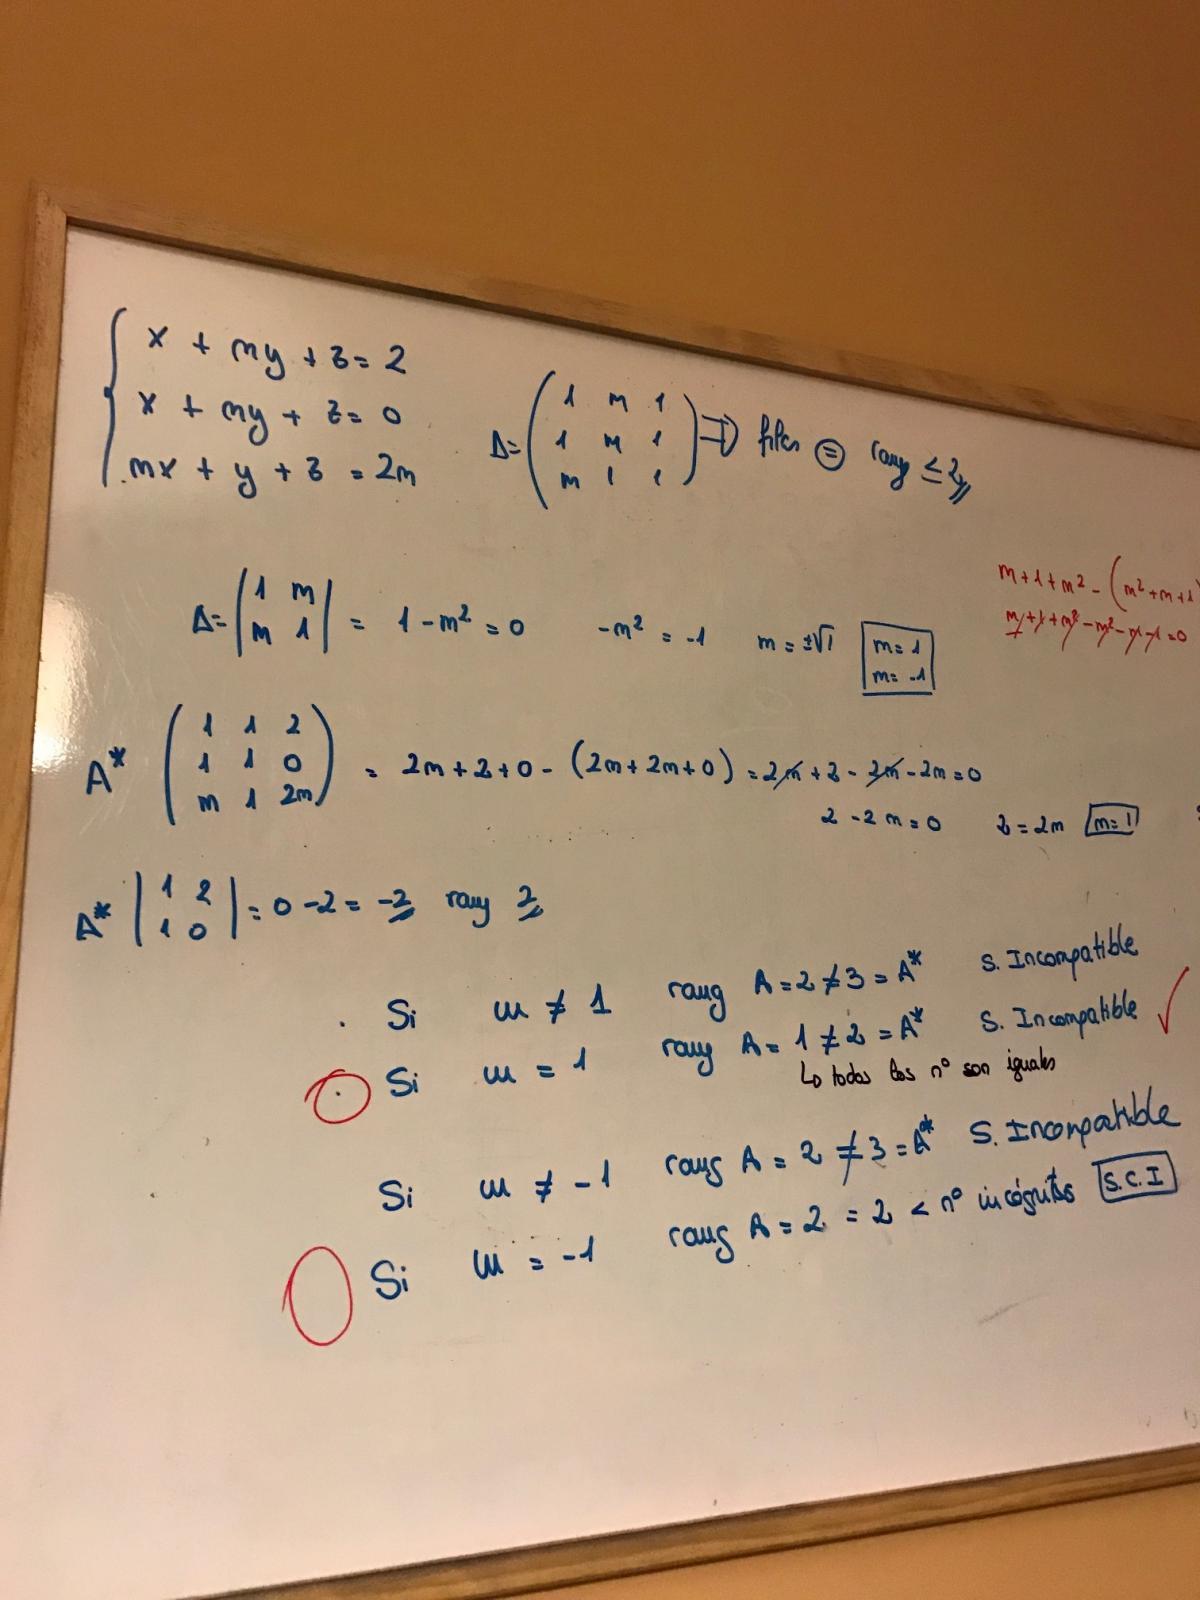 x + my + z = 2
x + my + z = 0
mx + y + z = 2m
A = ( 1 m 1
1 m 1
m 1 1 ) ⇒ filas = rang ≤ 2
Δ = | 1 m
m 1 | = 1 - m² = 0 -m² = -1 m = ±√1 m = 1
m = -1
m + 1 + m² - (m² + m + 1)
m + 1 + m² - m² - m - 1 = 0
A* ( 1 1 2
1 1 0
m 1 2m ) = 2m + 2 + 0 - (2m + 2m + 0) = 2m + 2 - 2m - 2m = 0
2 - 2m = 0 2 = 2m m = 1
A* | 1 2
1 0 | = 0 - 2 = -2 rang 2
· Si m ≠ 1 rang A = 2 ≠ 3 = A* S. Incompatible
· Si m = 1 rang A = 1 ≠ 2 = A* S. Incompatible ✓
↳ todos los nº son iguales
Si m ≠ -1 rang A = 2 ≠ 3 = A* S. Incompatible
Si m = -1 rang A = 2 = 2 < nº incógnitas S.C.I